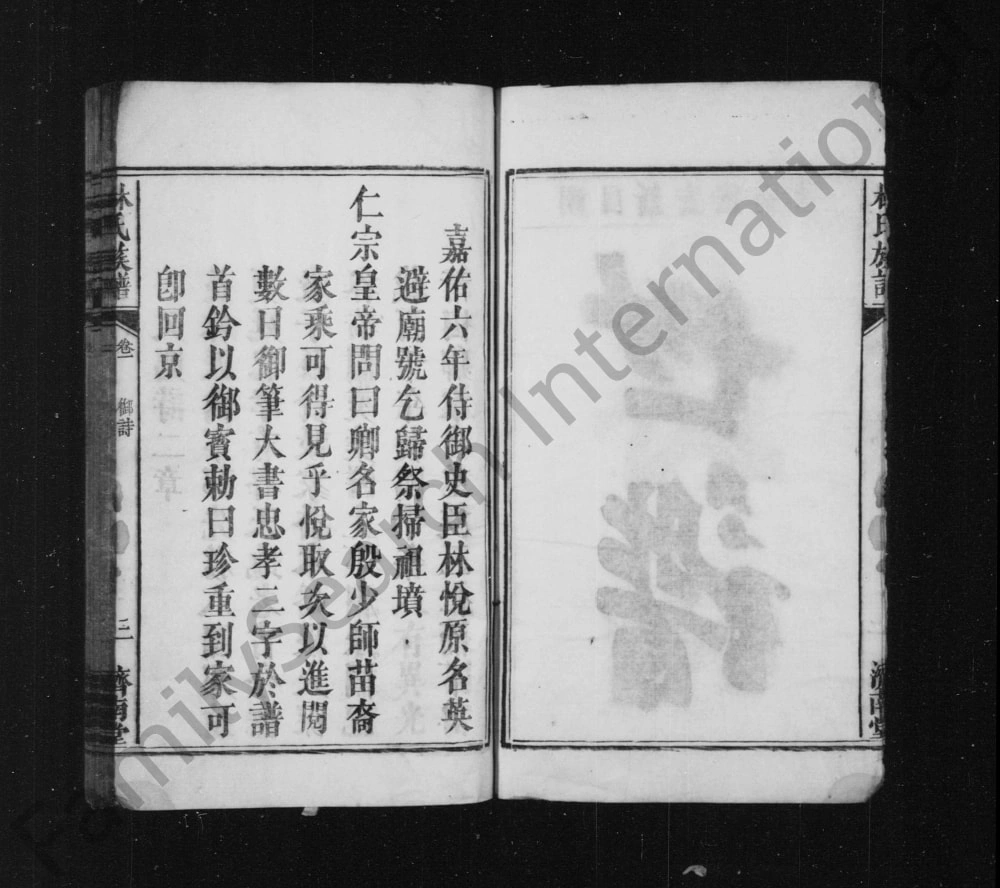 林氏族譜
濟南堂
嘉佑六年侍御史臣林悅原名英
避廟號乞歸祭掃祖墳
仁宗皇帝問曰卿名家殷少師苗裔
家乘可得見乎悅取矢以進閱
數日御筆大書忠孝二字於譜
首鈐以御寶勅曰珍重到家可
卽回京
林氏族譜
卷一
御詩
三
濟南堂
FamilySearch International